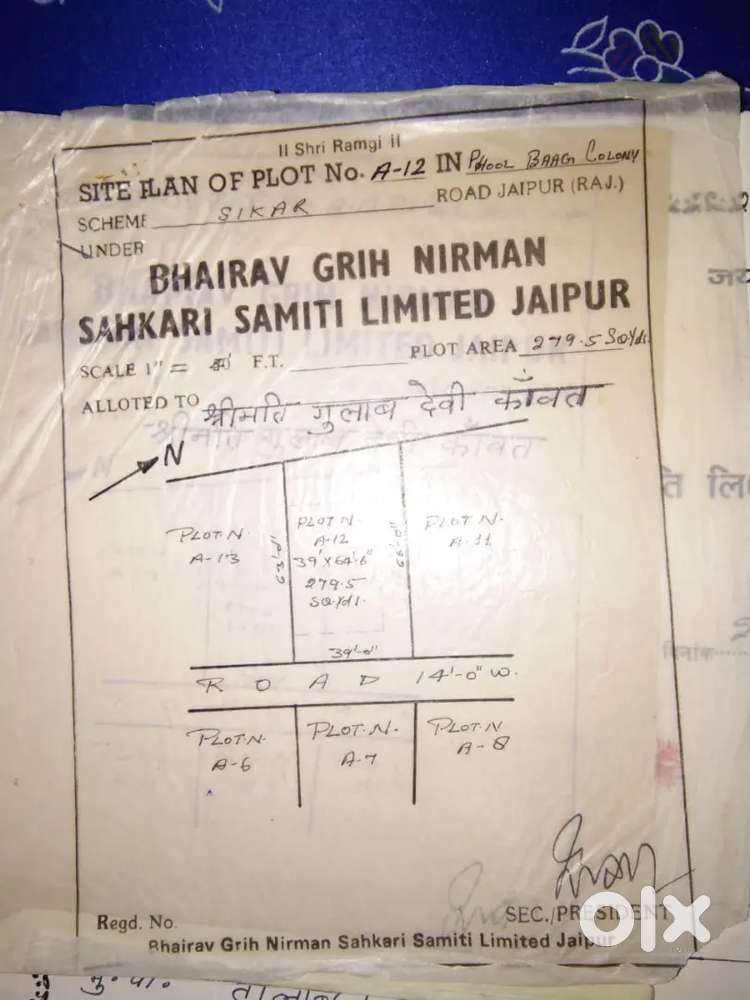 II Shri Ramgi II
SITE PLAN OF PLOT No. A-12 IN PHOOL BAAG COLONY
SCHEME SIKAR ROAD JAIPUR (RAJ.)
UNDER
BHAIRAV GRIH NIRMAN
SAHKARI SAMITI LIMITED JAIPUR
SCALE 1" = F.T. PLOT AREA 279.5 SQ.Yds.
ALLOTED TO श्रीमति गुलाब देवी काँवत
N
PLOT.N. A-13
63'-0"
PLOT N. A-12
39'X64'-6"
279.5
SQ.Yds.
66'-0"
PLOT N. A-11
39'-0"
ROAD 14'-0" W.
PLOT.N. A-6
PLOT.N. A-7
PLOT.N A-8
SEC./PRESIDENT
Regd. No.
Bhairav Grih Nirman Sahkari Samiti Limited Jaipur
olx
ति लि
दिनांक